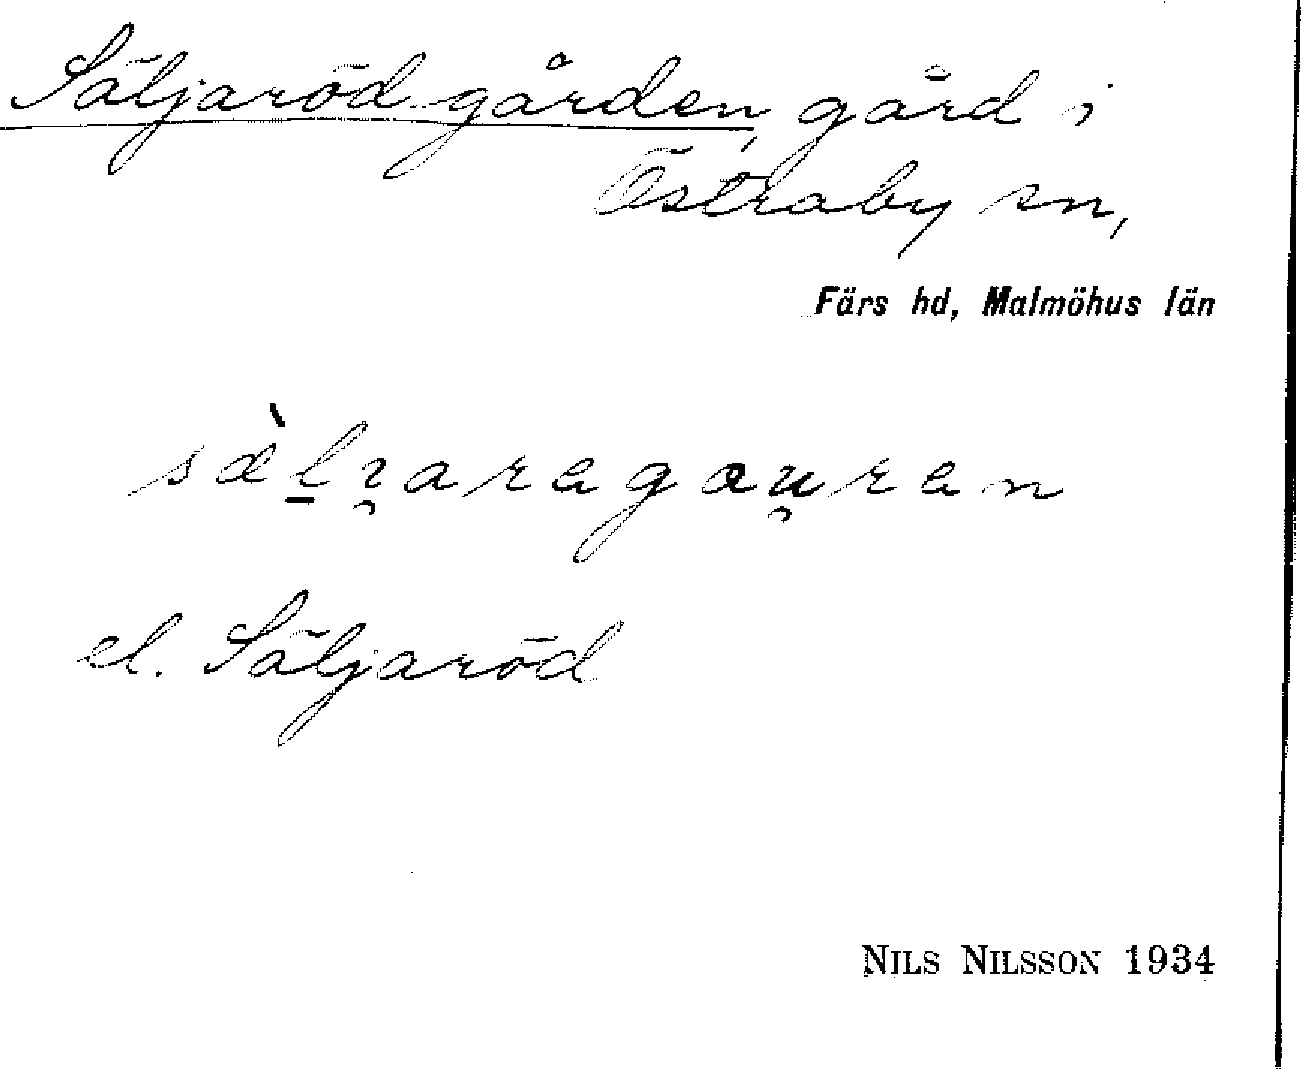 Säljaröd-gården, gård i
Östraby sn,
Färs hd, Malmöhus län
sæ̀l̠ı̯aragau̯ran
el. Säljaröd
NILS NILSSON 1934